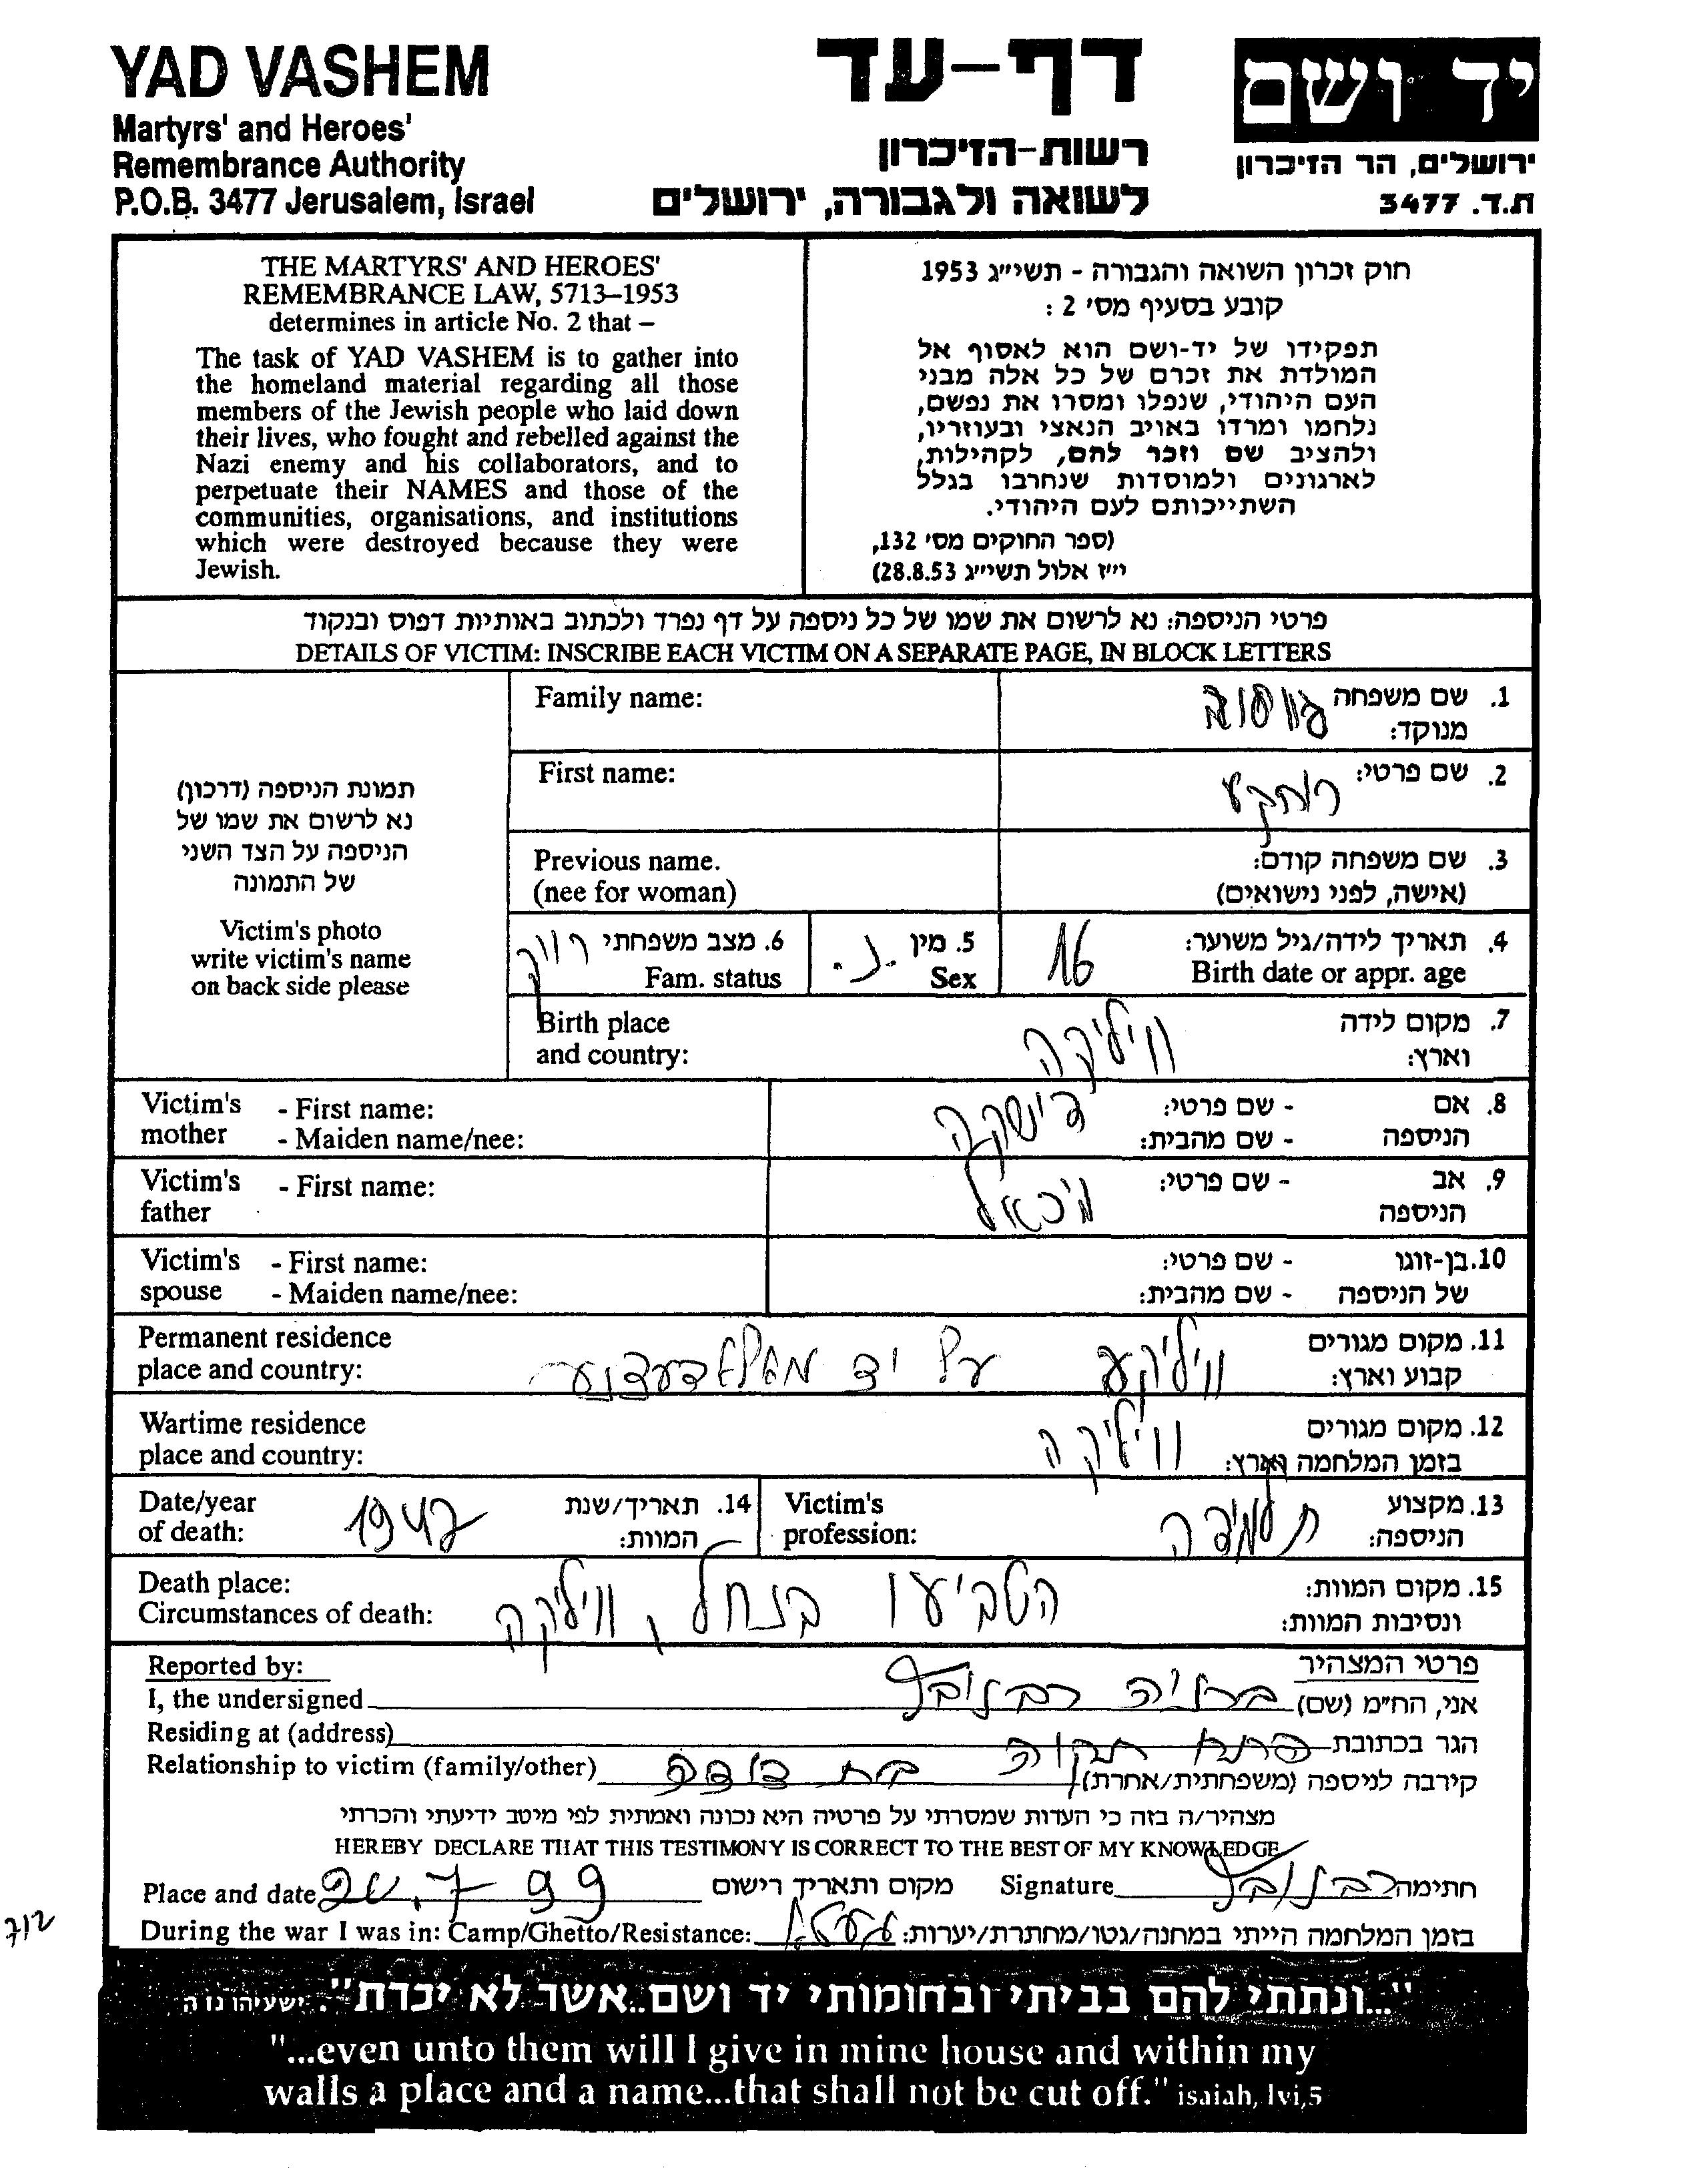 YAD VASHEM
Martyrs' and Heroes'
Remembrance Authority
P.O.B. 3477 Jerusalem, Israel
דף-עד
רשות-הזיכרון
לשואה ולגבורה, ירושלים
יד ושם
ירושלים, הר הזיכרון
ת.ד. 3477
THE MARTYRS' AND HEROES'
REMEMBRANCE LAW, 5713–1953
determines in article No. 2 that –
The task of YAD VASHEM is to gather into
the homeland material regarding all those
members of the Jewish people who laid down
their lives, who fought and rebelled against the
Nazi enemy and his collaborators, and to
perpetuate their NAMES and those of the
communities, organisations, and institutions
which were destroyed because they were
Jewish.
חוק זכרון השואה והגבורה - תשי״ג 1953
קובע בסעיף מס׳ 2 :
תפקידו של יד-ושם הוא לאסוף אל
המולדת את זכרם של כל אלה מבני
העם היהודי, שנפלו ומסרו את נפשם,
נלחמו ומרדו באויב הנאצי ובעוזריו,
ולהציב שם וזכר להם, לקהילות,
לארגונים ולמוסדות שנחרבו בגלל
השתייכותם לעם היהודי.
(ספר החוקים מס׳ 132,
י״ז אלול תשי״ג 28.8.53)
פרטי הניספה: נא לרשום את שמו של כל ניספה על דף נפרד ולכתוב באותיות דפוס ובנקוד
DETAILS OF VICTIM: INSCRIBE EACH VICTIM ON A SEPARATE PAGE, IN BLOCK LETTERS
תמונת הניספה (דרכון)
נא לרשום את שמו של
הניספה על הצד השני
של התמונה
Victim's photo
write victim's name
on back side please
Family name:
1. שם משפחה
מנוקד:
First name:
2. שם פרטי:
Previous name.
(nee for woman)
3. שם משפחה קודם:
(אישה, לפני נישואים)
4. תאריך לידה/גיל משוער: 16
Birth date or appr. age
5. מין נ.
Sex
6. מצב משפחתי רווק
Fam. status
Birth place
and country:
7. מקום לידה
וארץ: ווילקה
Victim's - First name:
mother - Maiden name/nee:
8. אם - שם פרטי:
הניספה - שם מהבית:
Victim's - First name:
father
9. אב - שם פרטי: מיכאל
הניספה
Victim's - First name:
spouse - Maiden name/nee:
10. בן-זוגו - שם פרטי:
של הניספה - שם מהבית:
Permanent residence
place and country:
11. מקום מגורים
קבוע וארץ: ווילקע על יד
Wartime residence
place and country:
12. מקום מגורים
בזמן המלחמה וארץ: ווילקה
Date/year
of death:
14. תאריך/שנת
המוות: 1942
Victim's
profession:
13. מקצוע
הניספה: תלמידה
Death place:
Circumstances of death:
15. מקום המוות:
ונסיבות המוות: הטביעו בנחל, ווילקה
Reported by:
פרטי המצהיר
I, the undersigned אני, הח״מ (שם)
Residing at (address) הגר בכתובת פתח תקוה
Relationship to victim (family/other) קירבה לניספה (משפחתית/אחרת) בת דודה
מצהיר/ה בזה כי העדות שמסרתי על פרטיה היא נכונה ואמתית לפי מיטב ידיעתי והכרתי
HEREBY DECLARE THAT THIS TESTIMONY IS CORRECT TO THE BEST OF MY KNOWLEDGE
Place and date מקום ותאריך רישום Signature חתימה
During the war I was in: Camp/Ghetto/Resistance: בזמן המלחמה הייתי במחנה/גטו/מחתרת/יערות:
"...ונתתי להם בביתי ובחומותי יד ושם..אשר לא יכרת". ישעיהו נו ה
"...even unto them will I give in mine house and within my
walls a place and a name...that shall not be cut off." isaiah, lvi,5